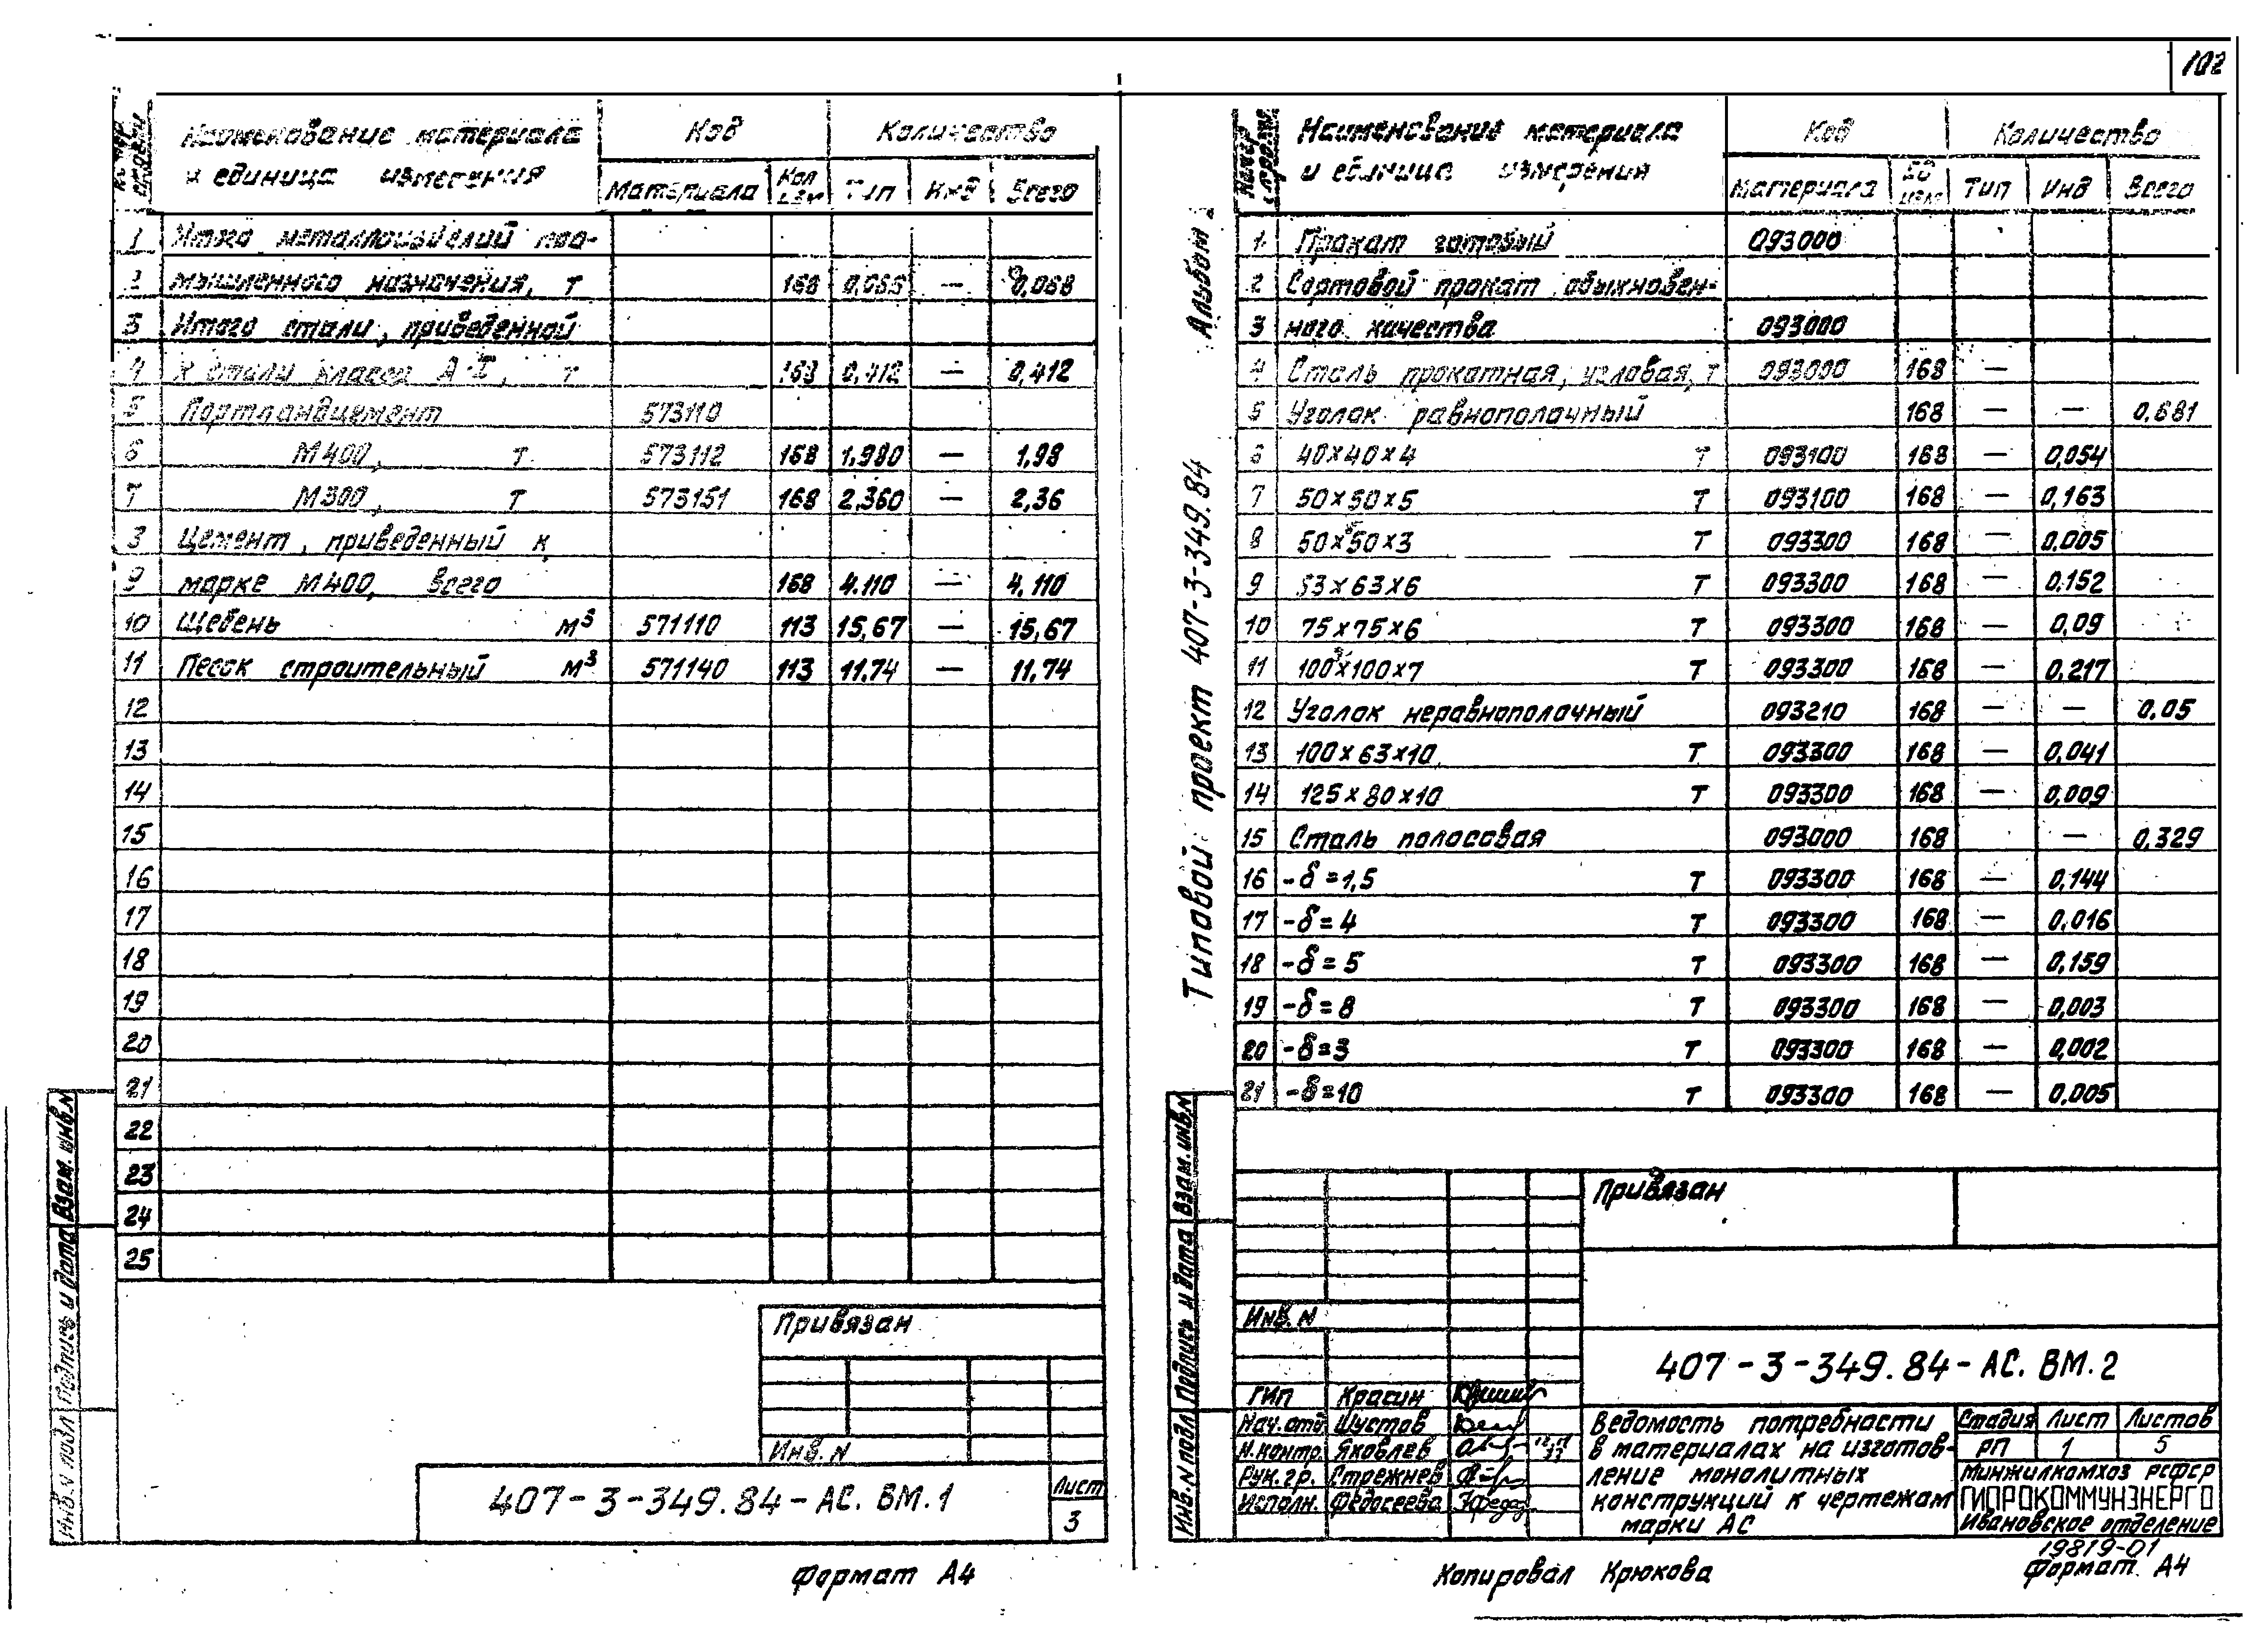 102
Номер строки
Наименование материала
и единица измерения
Код
Количество
Материала
Тип
Инд
Всего
1 Итого металлоизделий про-
2 мышленного назначения, т 168 0,068 — 0,068
3 Итого стали, приведенной
4 к стали класса А-I, т 168 0,412 — 0,412
5 Портландцемент 573110
6 М400, т 573112 168 1,980 — 1,98
7 М300, т 573151 168 2,360 — 2,36
8 Цемент, приведенный к
9 марке М400, всего 168 4.110 — 4,110
10 Щебень м3 571110 113 15,67 — 15,67
11 Песок строительный м3 571140 113 11.74 — 11,74
12
13
14
15
16
17
18
19
20
21
22
23
24
25
Привязан
Инв.N
407-3-349.84-АС. ВМ.1
Лист
3
Инв.N подл Подпись и дата Взам.инв.N
Формат А4
Альбом
Типовой проект 407-3-349.84
Номер строки
Наименование материала
и единица измерения
Код
Количество
Материала
Тип
Инд
Всего
1 Прокат готовый 093000
2 Сортовой прокат обыкновен-
3 ного качества 093000
4 Сталь прокатная, угловая, т 093000 168 —
5 Уголок равнополочный 168 — — 0,681
6 40×40×4 т 093100 168 — 0,054
7 50×50×5 т 093100 168 — 0,163
8 50×50×3 т 093300 168 — 0.005
9 63×63×6 т 093300 168 — 0.152
10 75×75×6 т 093300 168 — 0,09
11 100×100×7 т 093300 168 — 0,217
12 Уголок неравнополочный 093210 168 — — 0,05
13 100×63×10 т 093300 168 — 0,041
14 125×80×10 т 093300 168 — 0,009
15 Сталь полосовая 093000 168 — 0,329
16 -δ=1,5 т 093300 168 — 0,144
17 -δ=4 т 093300 168 — 0,016
18 -δ=5 т 093300 168 — 0,159
19 -δ=8 т 093300 168 — 0,003
20 -δ=3 т 093300 168 — 0,002
21 -δ=10 т 093300 168 — 0,005
Привязан
Инв.N
407-3-349.84-АС. ВМ.2
ГИП Красин
Нач.отд Шустов
Н.контр. Яковлев
Рук.гр. Стрежнев
Исполн. Федосеева
Ведомость потребности
в материалах на изготов-
ление монолитных
конструкций к чертежам
марки АС
Стадия Лист Листов
РП 1 5
Минжилкомхоз РСФСР
ГИПРОКОММУНЭНЕРГО
Ивановское отделение
Инв.N подл Подпись и дата Взам.инв.N
19819-01
Копировал Крюкова
Формат А4